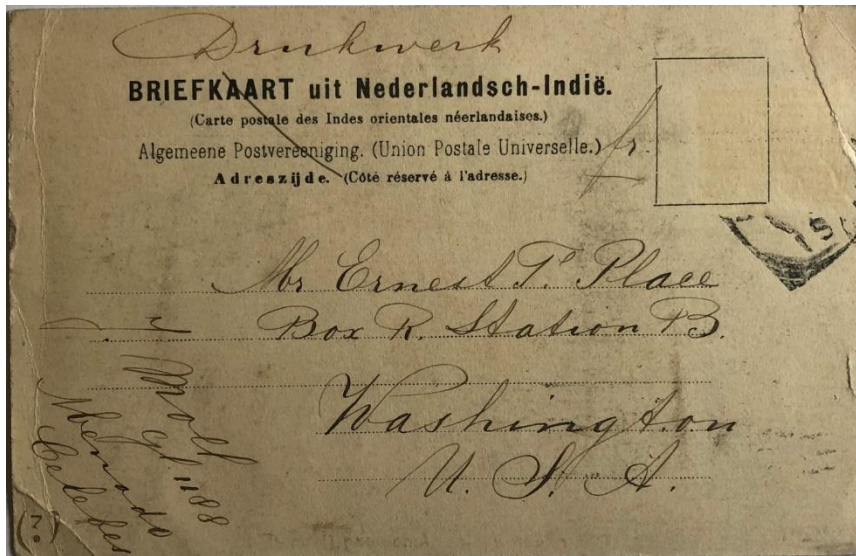 Drukwerk
BRIEFKAART uit Nederlandsch-Indië.
(Carte postale des Indes orientales néerlandaises.)
Algemeene Postvereeniging. (Union Postale Universelle.)
fr.
Adreszijde. (Côté réservé à l'adresse.)
Mr Ernest T. Place
Box R. Station B.
Washington
U. S. A.
Moll
1188
Menado
Celebes